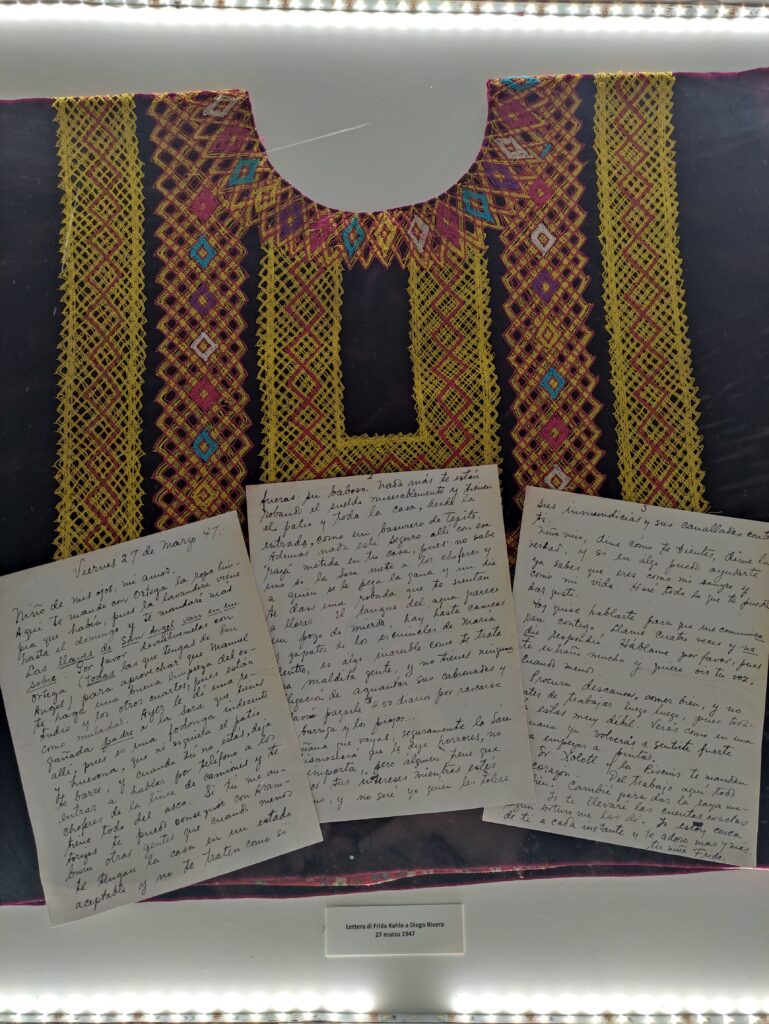 Viernes 27 de Marzo 47.
Niño de mis ojos, mi amor.
Aqui te mando con Ortega la ropa lim-
pia que habia, pues la lavandera viene
hasta el domingo y te mandaré más.
Las llaves de San Angel van en un
sobre. Por favor, devuelvemelas con
Ortega (todas las que tengas de San
Angel) para aprovechar que Manuel
te haga una buena limpieza del es-
tudio y los otros cuartos, pues están
como muladar. Ayer le di una re-
gañada padre a la Sara que tienes
alli, pues es una fodonga indecente
y huevona, que ni siquiera el patio
te barre, y cuando tu no estás, deja
entrar a hablar por teléfono a los
choferes de la linea de camiones y te
tiene todo del asco. Si tu me au-
torizas te puedo conseguir con
otras gentes que cuando menos
te tengan la casa en un estado
aceptable y no te traten como si
2
fueras su baboso. Nada más te están
robando el sueldo miserablemente y tienen
el patio y toda la casa, desde la
entrada, como un basurero de Tepito.
Ademas nada está seguro alli con esa
metida en tu casa, pues no sabe
uno si la Sara mete a los choferes y
a quien se le pega la gana y un dia
te dan una robada que te sientan
a llorar. El tanque del agua parece
un pozo de mierda, hay hasta camisas
y zapatos de los escuincles de Maria
dentro, es algo increible como te trata
maldita gente, y no tienes ninguna
obligacion de aguantar sus cabronadas y
pagarle 4,50 diarios por rascarse
barriga y los piojos...
mañana que vayas, seguramente la Sara
que le dije horrores, no
importa, pero alguien tiene que
tus intereses mientras estés
y no seré yo quien les tolere
3
sus inmundicias y sus canalladas contra
ti.
Niño mio, dime como te sientes, dime la
verdad, y si en algo puedo ayudarte
ya sabes que eres como mi sangre y
como mi vida. Haré todo lo que te pueda
dar gusto.
Hoy quise hablarte para que me comunica
ran contigo, llamé cuatro veces y na
die respondió. Háblame por favor, pues
te extraño mucho y quiero oir tu voz,
cuando menos.
Procura descansar, comer bien, y no
trates de trabajar luego luego, pues toda-
via estás muy débil. Verás como en una
semana ya volverás a sentirte fuerte
a empezar a pintar.
Sr Xolotl y la Piscuis te mandan
corazon. Del trabajo aqui todo
bien. Cambié para dar la raya
te llevaré las cuentas exactas
me las dió. Yo estoy cerca
de ti a cada instante y te adoro mas y mas
tu niña Frida.
Lettera di Frida Kahlo a Diego Rivera
27 marzo 1947